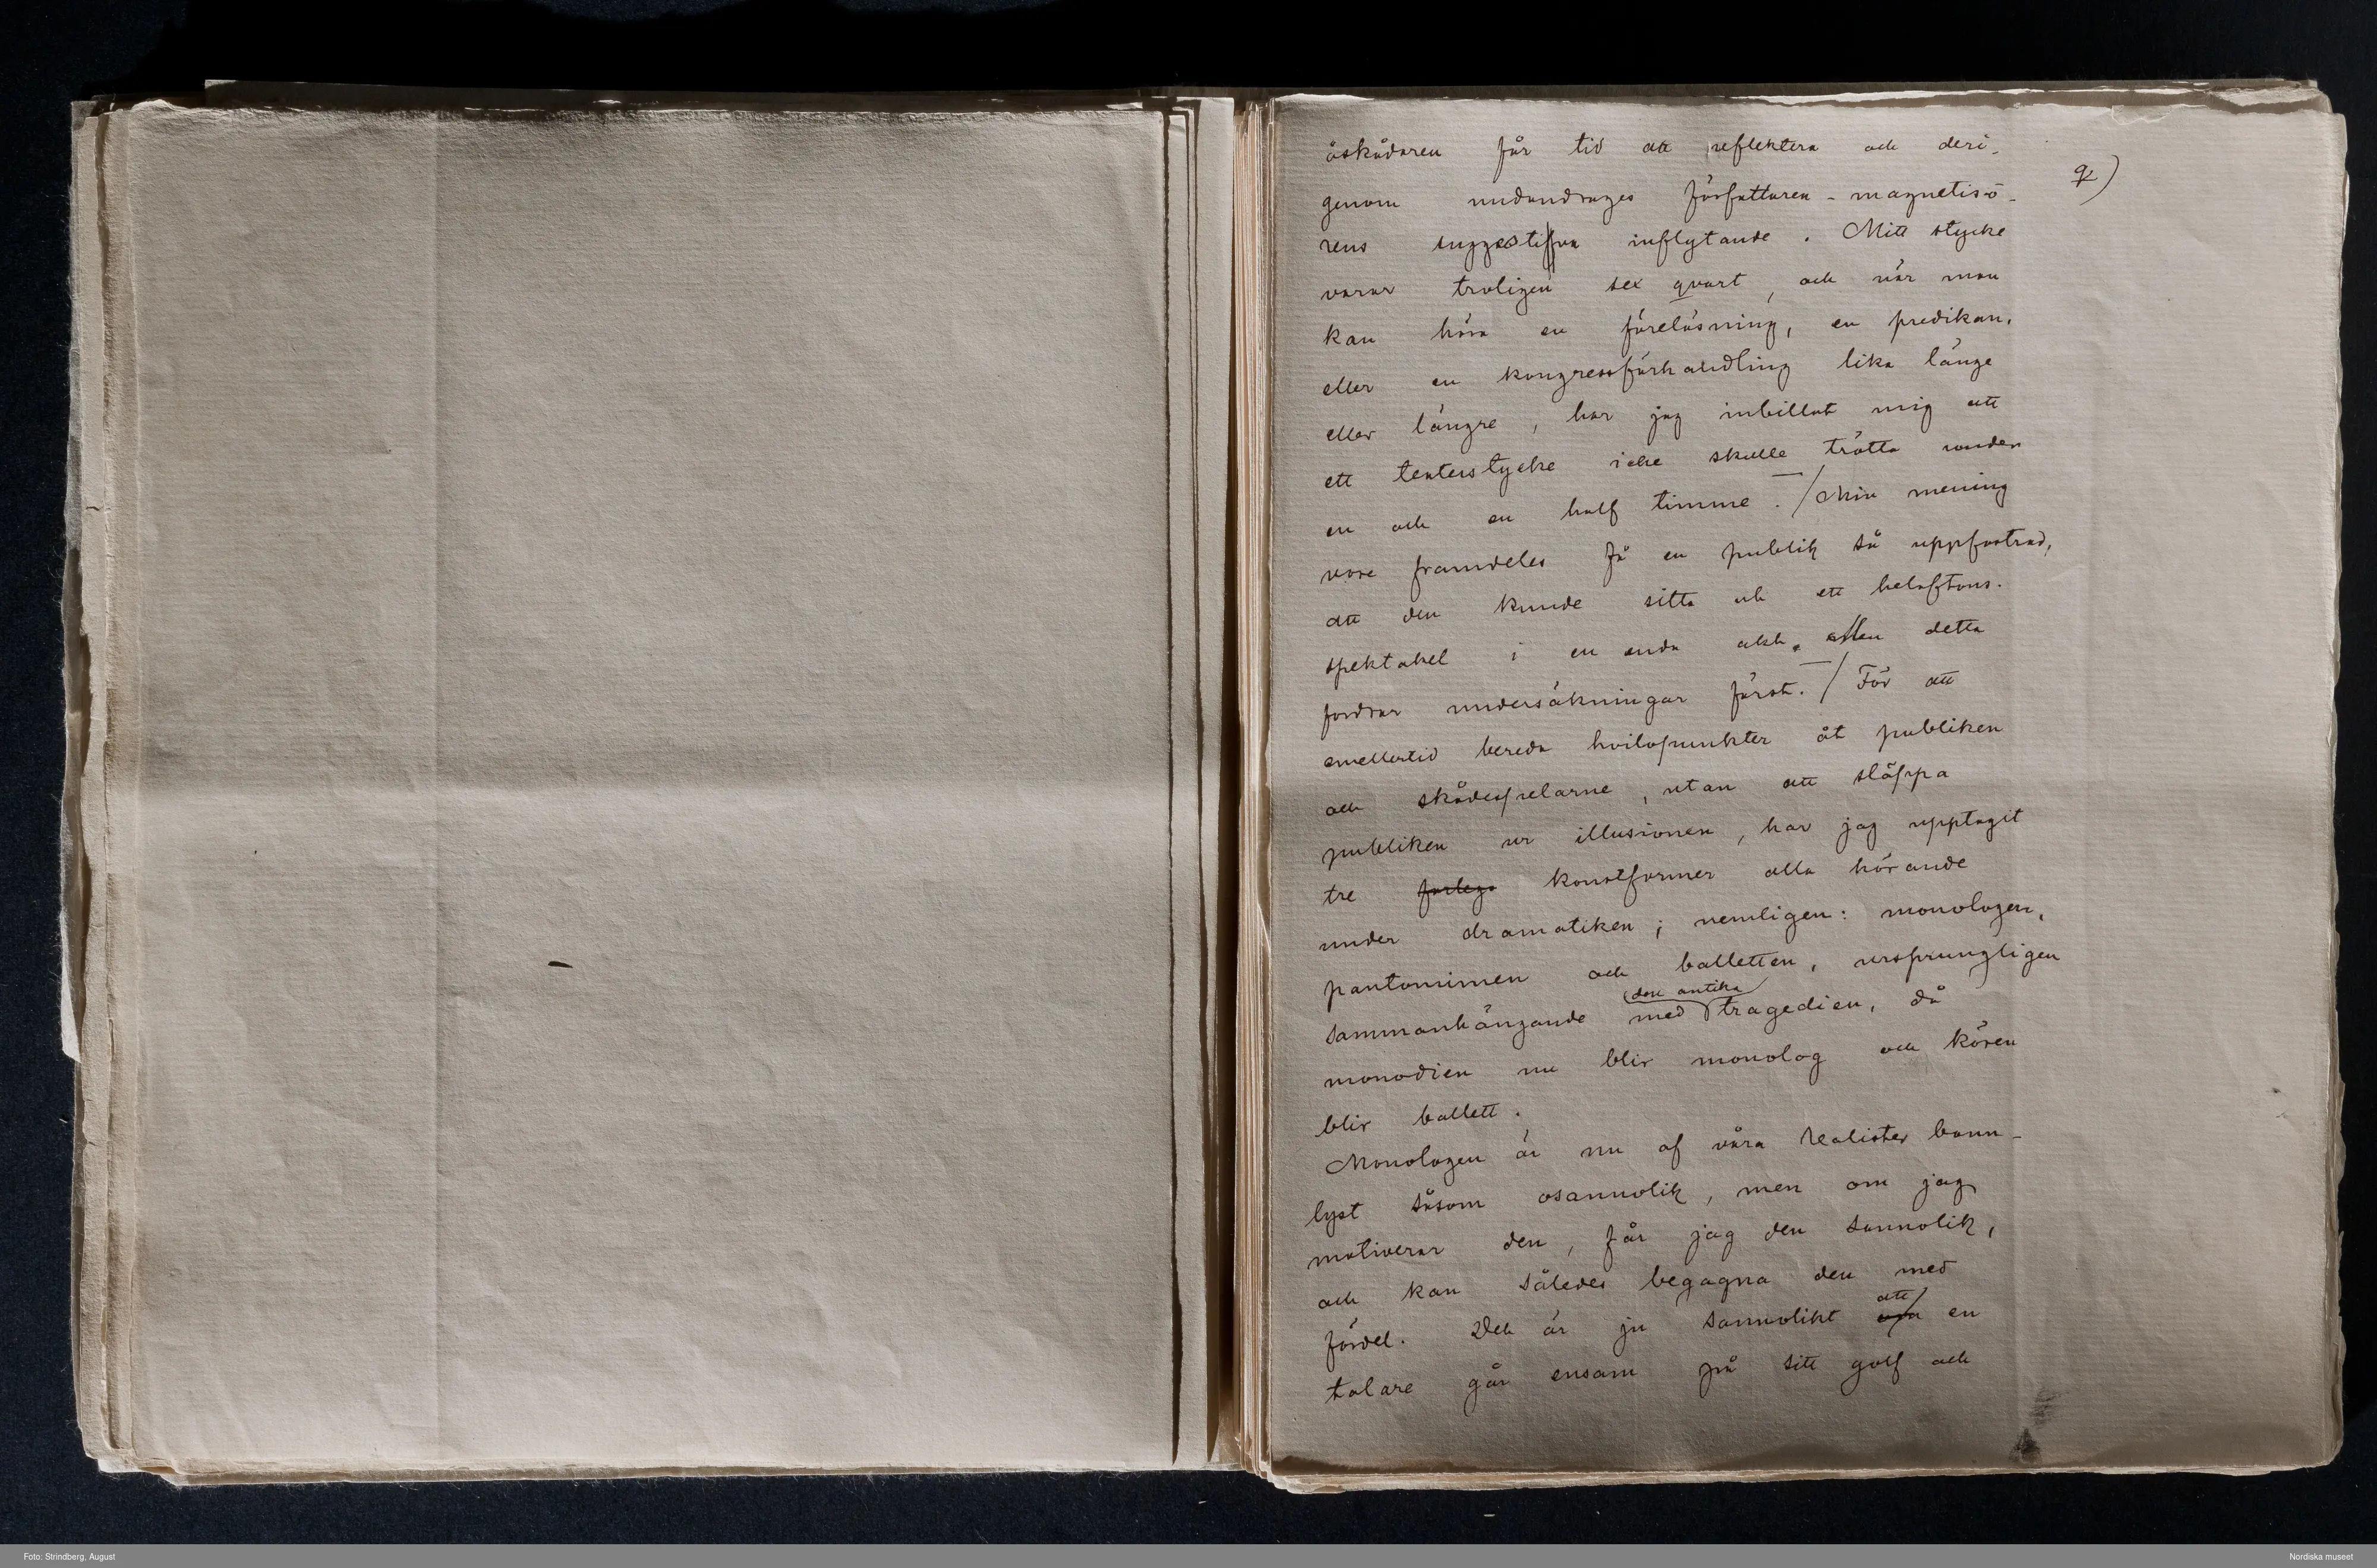 åskådaren får tid att reflektera och deri-
genom undandrages författaren-magnetisö-
rens suggestifva inflytande. Mitt stycke
varar troligen sex qvart, och när man
kan höra en föreläsning, en predikan,
eller en kongressförhandling lika länge
eller längre, har jag inbillat mig att
ett teaterstycke icke skulle trötta under
en och en half timme. / Min mening
vore framdeles få en publik så uppfostrad,
att den kunde sitta ut ett helaftons-
spektakel i en enda akt. Men detta
fordrar undersökningar först. / För att
emellertid bereda hvilopunkter åt publiken
och skådespelarne, utan att släppa
publiken ur illusionen, har jag upptagit
tre konstformer alla hörande
under dramatiken; nemligen: monologen,
pantomimen och balletten, ursprungligen
den antika
sammanhängande med tragedien, då
monodien nu blir monolog och kören
blir ballett.
Monologen är nu af våra realister bann-
lyst såsom osannolik, men om jag
motiverar den, får jag den sannolik,
och kan således begagna den med
fördel. Det är ju sannolikt att en
talare går ensam på sitt golf och
Foto: Strindberg, August
Nordiska museet